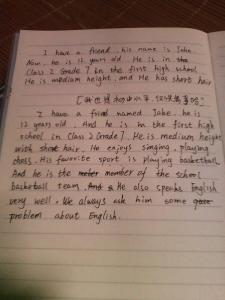 I have a friend. his name is Jake.
Now. he is 12 years old. He is in the
Class 2 Grade 7 in the first high school.
He is medium height. and He has short hair
I have a friend named Jake. he is
12 years old. And he is in the first high
school in Class 2 Grade 7. He is medium height
with short hair. He enjoys singing. playing
chess. His favorite sport is playing basketball.
And he is the member of the school
basketball team. He also speaks English
very well. We always ask him some
problem about English.